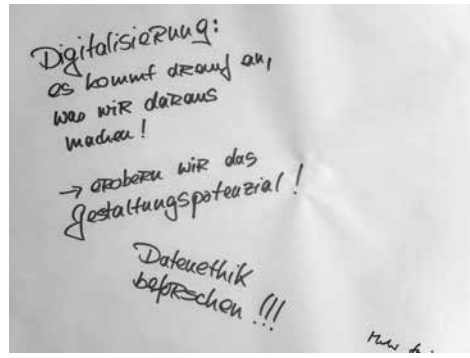 Digitalisierung:
es kommt drauf an,
was wir daraus
machen!
→ erobern wir das
Gestaltungspotenzial!
Datenethik
beforschen!!!
Mehr